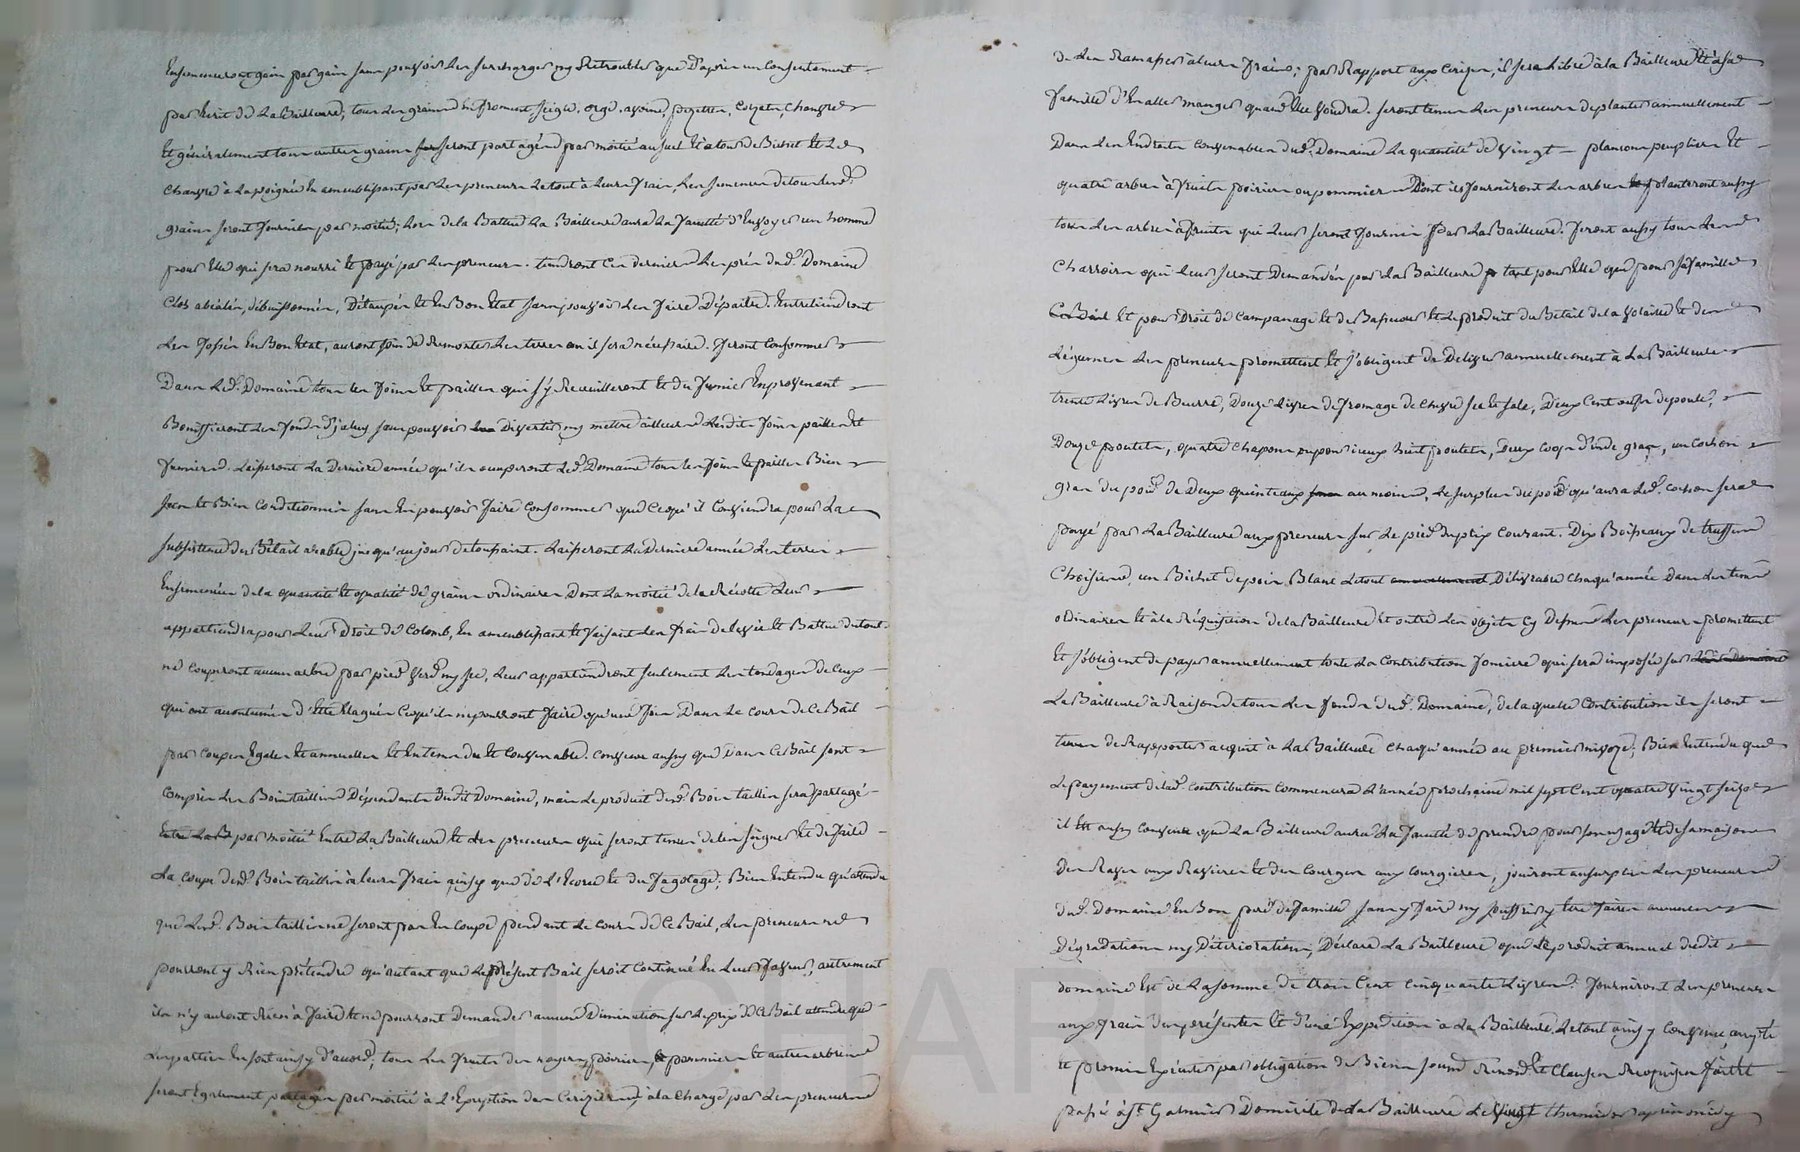 Ensemenceront grain par grain sans pouvoir les surcharger ny Retroubler que D'après un Consentement
par Ecrit de La Bailleure; tous les grains En froment, Seigle, orge, avoine, pezettes, Colzats, Chanvre
Et généralement tous autres grains seront partagés par moitié au suel Et à tour de Bichet Et Le
Chanvre à La poignée En ameublissant par Les preneurs Le tout à Leurs frais Les semences de tous Lesd.
grains seront fournies par moitié; Lors de la Battue La Bailleure aura La faculté d'Envoyer un homme
pour Elle qui sera nourri Et payé par Les preneurs. tiendront Ces derniers Les prés dud. Domaine
Clos abéalés, débuissonnés, Détaupés Et En Bon Etat sans pouvoir Les faire Dépaitre. Entretiendront
Les fossés En Bon Etat, auront soin de Remonter Les terres où il sera nécessaire. feront Consommer
Dans Led. Domaine tous les foins Et pailles qui s'y Recueilleront Et du fumier En provenant
Bonifieront Les fonds d'jceluy sans pouvoir Divertir ny mettre ailleurs Lesdits foins pailles Et
fumiers. Laisseront La Derniere année qu'ils occuperont Led. Domaine tous les foins Et pailles Bien
secs Et Bien Conditionnés sans En pouvoir faire Consommer que Ce qu'il Conviendra pour La
subsistence du Bétail arable jusqu'au jour de toussaint. Laisseront La derniere année Les terres
Ensemencées de la quantité Et qualité de grains ordinaires Dont La moitié de la Récolte Leur
appartiendra pour Leur Droit de Colomb, En ameublissant Et faisant Les frais de levée Et Battue du tout
ne Couperont aucun arbre par pied verd ny sec, Leur appartiendront seulement Les tondages de Ceux
qui ont accoutumés d'Etre Elagués Ce qu'ils ne pourront faire qu'une fois Dans Le cours de Ce Bail
par Coupes Egales Et annuelles Et En tems du Et Convenable. Convenu aussy que Dans Ce Bail sont
Compris Les Bois taillis Dépendants Dudit Domaine, mais Le produit desd. Bois taillis sera partagé
Entre La B par moitié Entre La Bailleure Et Les preneurs qui seront tenus de les soigner Et de faire
La coupe desd. Bois taillis à leurs frais ainsy que de L'Ecorce Et du fagotage; Bien Entendu qu'attendu
que Lesd. Bois taillis ne seront pas En Coupe pendant Le cours de Ce Bail, Les preneurs ne
pourront y Rien prétendre qu'autant que Le présent Bail seroit Continué En Leur faveur, autrement
ils n'y auront Rien à faire Et ne pourront Demander aucune Diminution sur Le prix de Ce Bail attendu que
Les parties En sont ainsy d'accord; tous Les fruits des noyers, poiriers, pommiers Et autres arbres
seront Egalement partagés par moitié à L'Exception des Cerisiers, à la Charge par Les preneurs
de Les Ramasser à Leurs frais; par Rapport aux Cerises, il sera Libre à la Bailleure Et à sa
famille d'En aller manger quand Elle voudra. seront tenus Les preneurs de planter annuellement
Dans Les Endroits Convenables dud. Domaine La quantité de vingt plançons peupliers Et
quatre arbres à fruits poiriers ou pommiers Dont ils fourniront Les arbres planteront aussy
tous Les arbres à fruits qui Leur seront fournis par La Bailleure. feront aussy tous Les
Charrois qui Leur seront Demandés par La Bailleure tant pour Elle que pour sa famille
Ce Bail Et pour Droit de Campanage Et de Bassecour Et Le produit du Bétail de la volaille Et des
Légumes Les preneurs promettent Et s'obligent de Delivrer annuellement à La Bailleure
trente Livres de Beurre, Douze Livres de fromage de Chevre sec Et salé, Deux Cent œufs de poule,
Douze poulets, quatre Chapons ou pour iceux huit poulets, Deux Coqs d'inde gras, un Cochon
gras du poid de Deux quinteaux au moins, Le surplus du poid qu'aura Led. cochon sera
payé par La Bailleure aux preneurs sur Le pied du prix Courant. Dix Boisseaux de truffes
Choisies, un Bichet de pois Blanc Le tout annuellement Délivrable Chaqu'année Dans Les tems
ordinaires Et à la Réquisition de la Bailleure Et outre Les objets Cy Dessus Les preneurs promettent
Et s'obligent de payer annuellement toute La Contribution fonciere qui sera imposée sur
La Bailleure à Raison de tous Les fonds dud. Domaine, de laquelle Contribution ils seront
tenus de Rapporter acquit à La Bailleure Chaqu'année au premier nivôze; Bien Entendu que
Le payement de lad. Contribution Commencera L'année prochaine mil sept Cent quatre vingt seize
il Est aussy Convenu que La Bailleure aura La faculté de prendre pour son usage Et de sa maison
Des Raves aux Ravieres Et des Courges aux Courgieres, jouiront au surplus Les preneurs
dud. Domaine En Bon pere de famille sans y faire ny souffrir y être faites aucunes
Dégradations ny Détériorations, Déclare La Bailleure que Le produit annuel dudit
domaine Est de La somme de trois Cent Cinquante Livres; fourniront Les preneurs
aux frais des présentes Et d'une Expedition à La Bailleure, Le tout ainsy Convenu, arrêté
Et promis Exécuter par obligation de Biens soums Renonc. Et Clauses Requises fait Et
passé à St. Galmier Domicile de La Bailleure Le vingt thermidor après midy